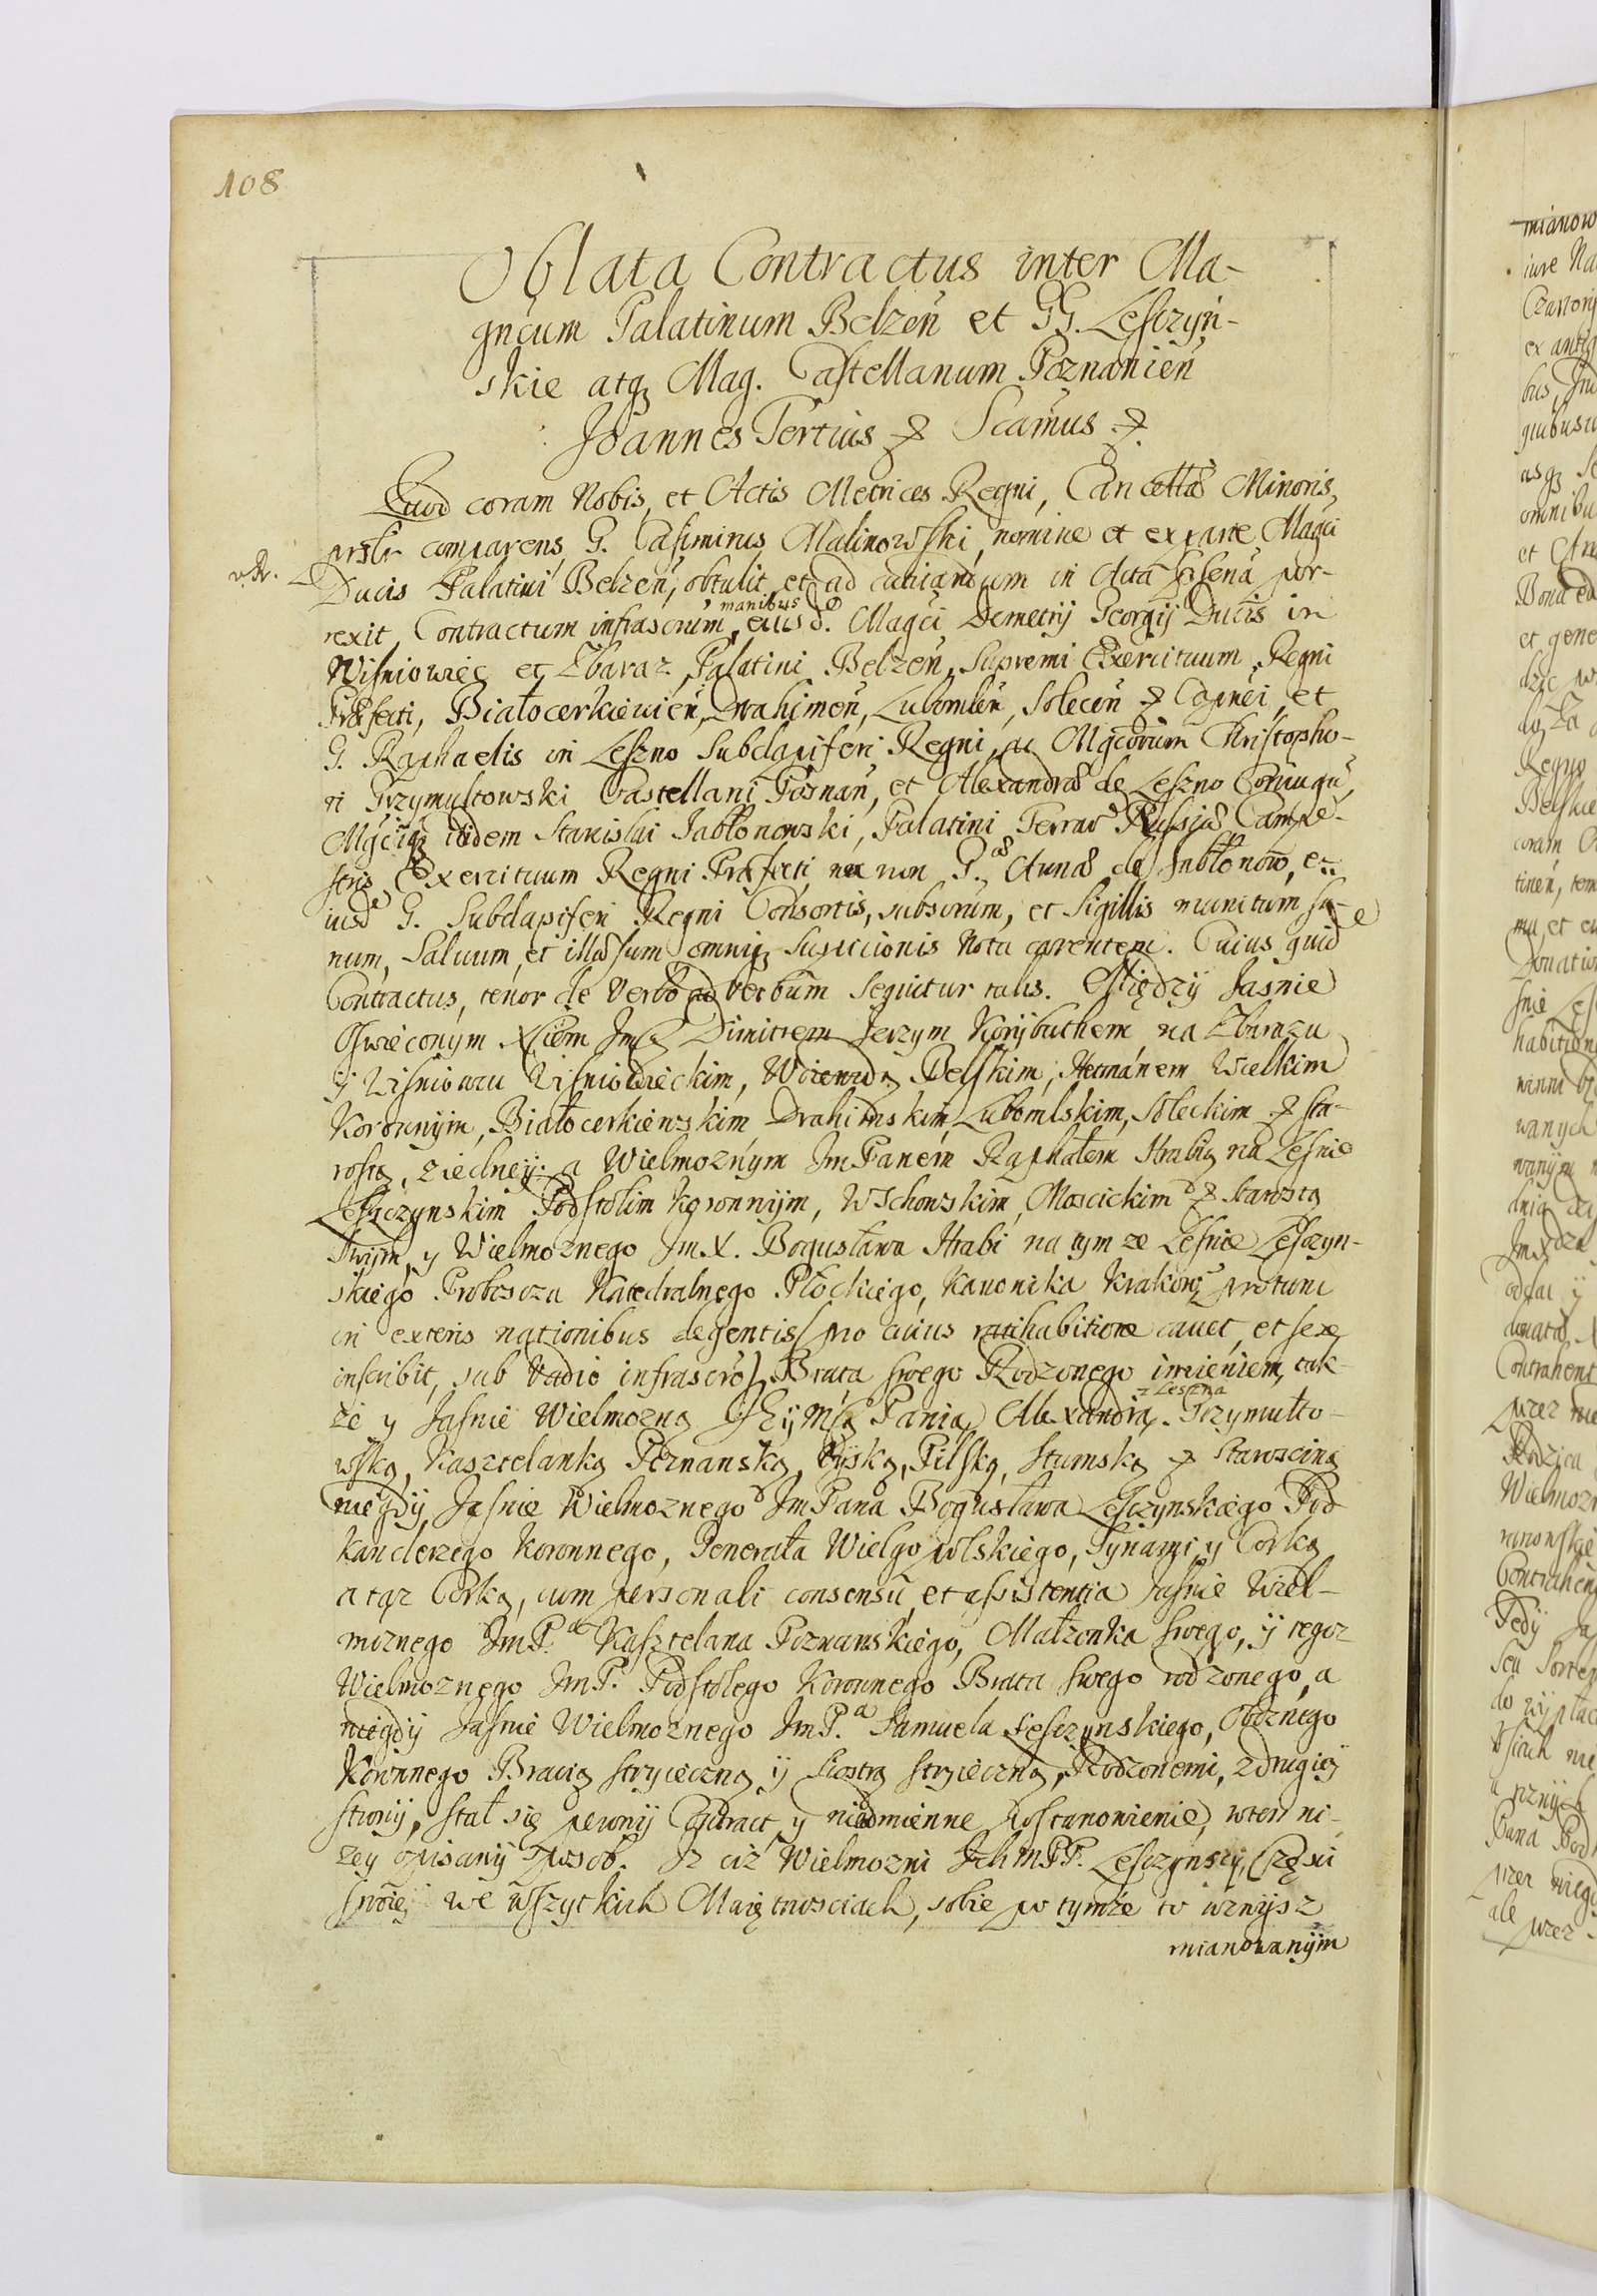 108
Oblata Contractus inter Ma-
gnćum Palatinum Belzeń et GG. Lesczyń-
skie atq Mag. Castellanum Poznanień
Joannes Tertius & Scamus &
Quod coram Nobis, et Actis Metrices Regni, Cancellæ Minoris,
comparens G. Casimirus Malinowski, nomine et ex parte Magći
Ducis Palatini Belzeń, obtulit et ad in Acta por-
rexit, Contractum infrascrium, manibus eiusd. Magći Demetrij Georgij Ducis in
Wisniowiec et Zbaraz, Palatini Belzeń, Supremi Exercituum Regni
Præfecti, Białocerkievień, Drahimeń, Lubomleń, Soleceń & Capnei, et
G. Raphaelis in Leszno Subdapiferi Regni, ac Mgćorum Christopho-
ri Przymułtowski Castellani Posnań, et Alexandræ de Leszno Coniugū,
itidem Stanislai Jabłonowski, Palatini Terrar Russiæ Campe-
stris Exercituum Regni Præfecti nec non G. Annæ de Jabłonow, e-
iusde G. Subdapiferi Regni Consortis, subscrium, et Sigillis munitum sa-
num, Saluum, et illæsum omniq Suspicionis Nota carentem. Cuius quide
Contractus, tenor de Verbo ad Verbum Sequitur talis. Między Jasnie
Oswieconym Xciem Jmcą Dimitrem Jerzym Korybuthem na Zbarazu
ÿ Wisniowcu Wisniowieckim, Woiewodą Belskim, Hetmánem Wielkim
Koronnÿm, Białocerkiewskim Drahimskim, Lubomlskim, Soleckim & sta-
rostą, ziedneÿ: a Wielmoznym Jm Panem Raphałem Hrabią na Lesnie
Leszczynskim Podstolim Koronnÿm, Wschowskim, Moscickim & Starostą
Swÿm, y Wielmoznego Jm X. Bogusława Hrabi na tym ze Lesnie Lesczyn-
skiego Proboscza Katedralnego Płockiego, Kanonika Krakow: pro tunc
in exteris nationibus degentis (pro cuius ratihabitione cavet, et sese
inscribit, sub Vadio infrascro) Brata swego Rodzonego imieniem, tak
że y Jasnie Wielmozną Panią Alexandrą z Leszna Przymułto-
wską, Kasztelanką Poznanską, Pilską, Stumską & Staroscina
niegdÿ Jasnie Wielmoznego Jm Pana Bogusława Lesczynskiego Pod
kanclerzego Koronnego, Generała Wielgopolskiego, Synami y Corką
a tąz Corką, cum personali consensu et assistentia Jasnie Wiel-
moznego Jm P.a Kasztelana Poznanskiego, Małzonka swego, ÿ tegoz
Wielmoznego Jm P. Podstolego Koronnego Brata swego rodzonego, a
niegdÿ Jasnie Wielmoznego Jm P.a Samuela Lesczynskiego, Oboznego
Koronnego Bracią stryieczną ÿ Siostrą stryieczną, Rodzonemi, z drugieÿ
stronÿ, stał się pewnÿ Contract y nieodmienne postanowienie, wten ni-
zey opisanÿ sposob. Jz ciż Wielmozni Ich MPP. Lesczynscÿ, Części
swoieÿ we wszytkich Maiętnosciach, sobie po tymże to wznÿsz
mianowanÿm